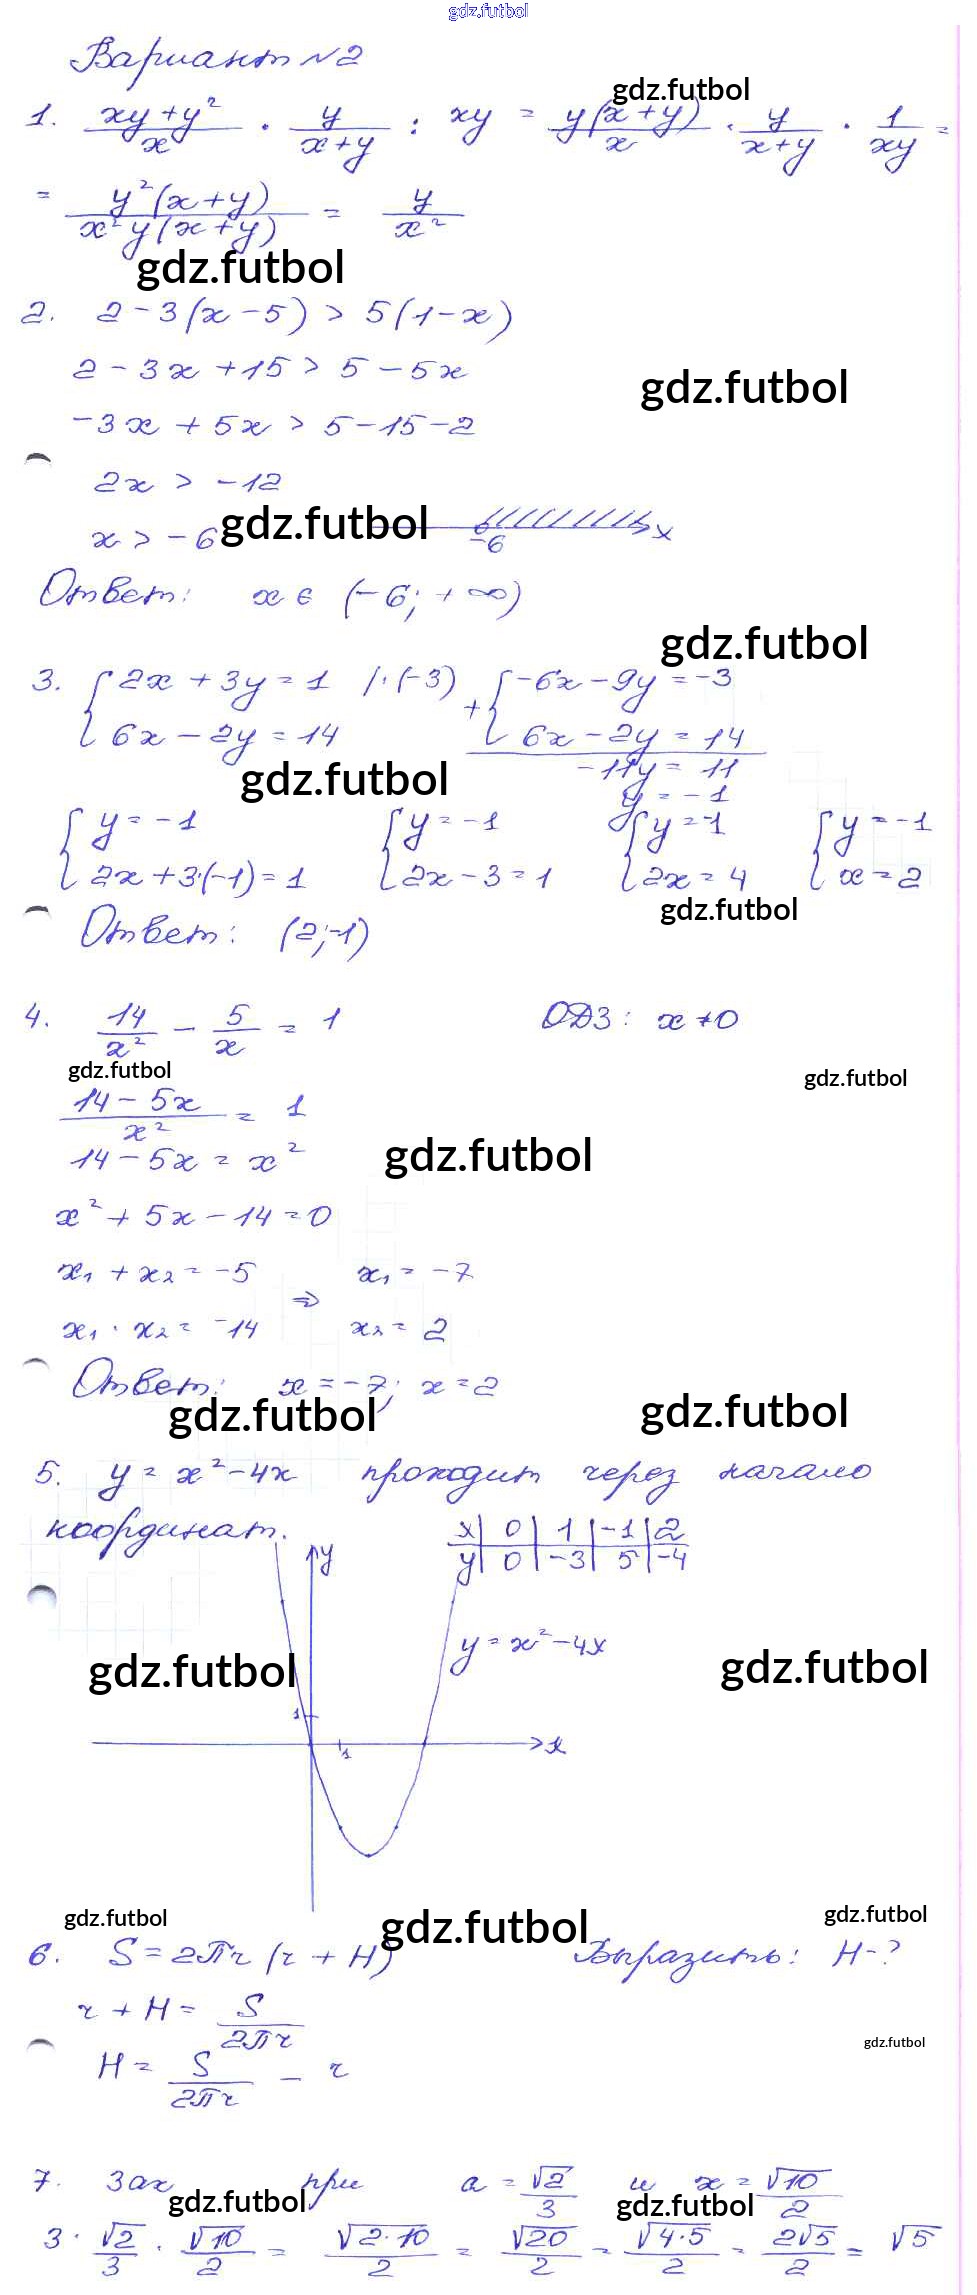 gdz.futbol
Вариант №2
gdz.futbol
1. (xy+y²)/x · y/(x+y) : xy = y(x+y)/x · y/(x+y) · 1/xy =
= y²(x+y)/(x²y(x+y)) = y/x²
gdz.futbol
2. 2-3(x-5) > 5(1-x)
2-3x+15 > 5-5x
gdz.futbol
-3x+5x > 5-15-2
2x > -12
x > -6 gdz.futbol -6 x
Ответ: x ∈ (-6; +∞)
gdz.futbol
3. { 2x+3y=1 |·(-3) + { -6x-9y=-3
6x-2y=14 6x-2y=14
gdz.futbol -11y=11
y=-1
{ y=-1 { y=-1 { y=-1 { y=-1
2x+3·(-1)=1 2x-3=1 2x=4 x=2
gdz.futbol
Ответ: (2;-1)
4. 14/x² - 5/x = 1 ОДЗ: x≠0
gdz.futbol gdz.futbol
(14-5x)/x² = 1
14-5x=x² gdz.futbol
x²+5x-14=0
x₁+x₂=-5 x₁=-7
⇒
x₁·x₂=-14 x₂=2
Ответ: x=-7; x=2
gdz.futbol gdz.futbol
5. y=x²-4x проходит через начало
координат.
x | 0 | 1 | -1 | 2
y | 0 | -3 | 5 | -4
y
y=x²-4x
gdz.futbol gdz.futbol
1
1 x
gdz.futbol gdz.futbol gdz.futbol
6. S=2πr(r+H) Выразить: H-?
r+H= S/2πr
gdz.futbol
H= S/2πr - r
7. 3ax при a=√2/3 и x=√10/2
gdz.futbol gdz.futbol
3·√2/3·√10/2 = √(2·10)/2 = √20/2 = √(4·5)/2 = 2√5/2 = √5